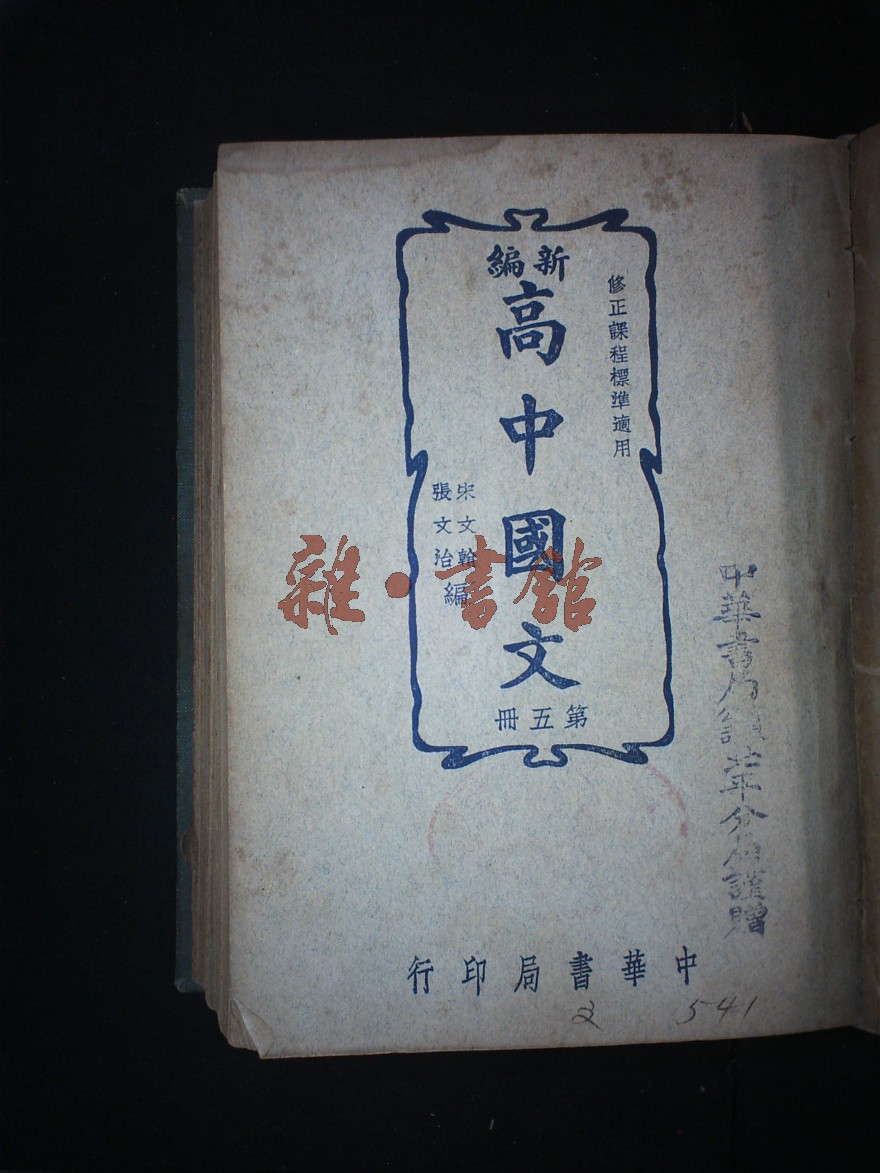 修正課程標準適用
新編
高中國文
宋文翰
張文治
編
第五冊
中華書局印行
中華書局
分局謹贈
2 541
雜·書館